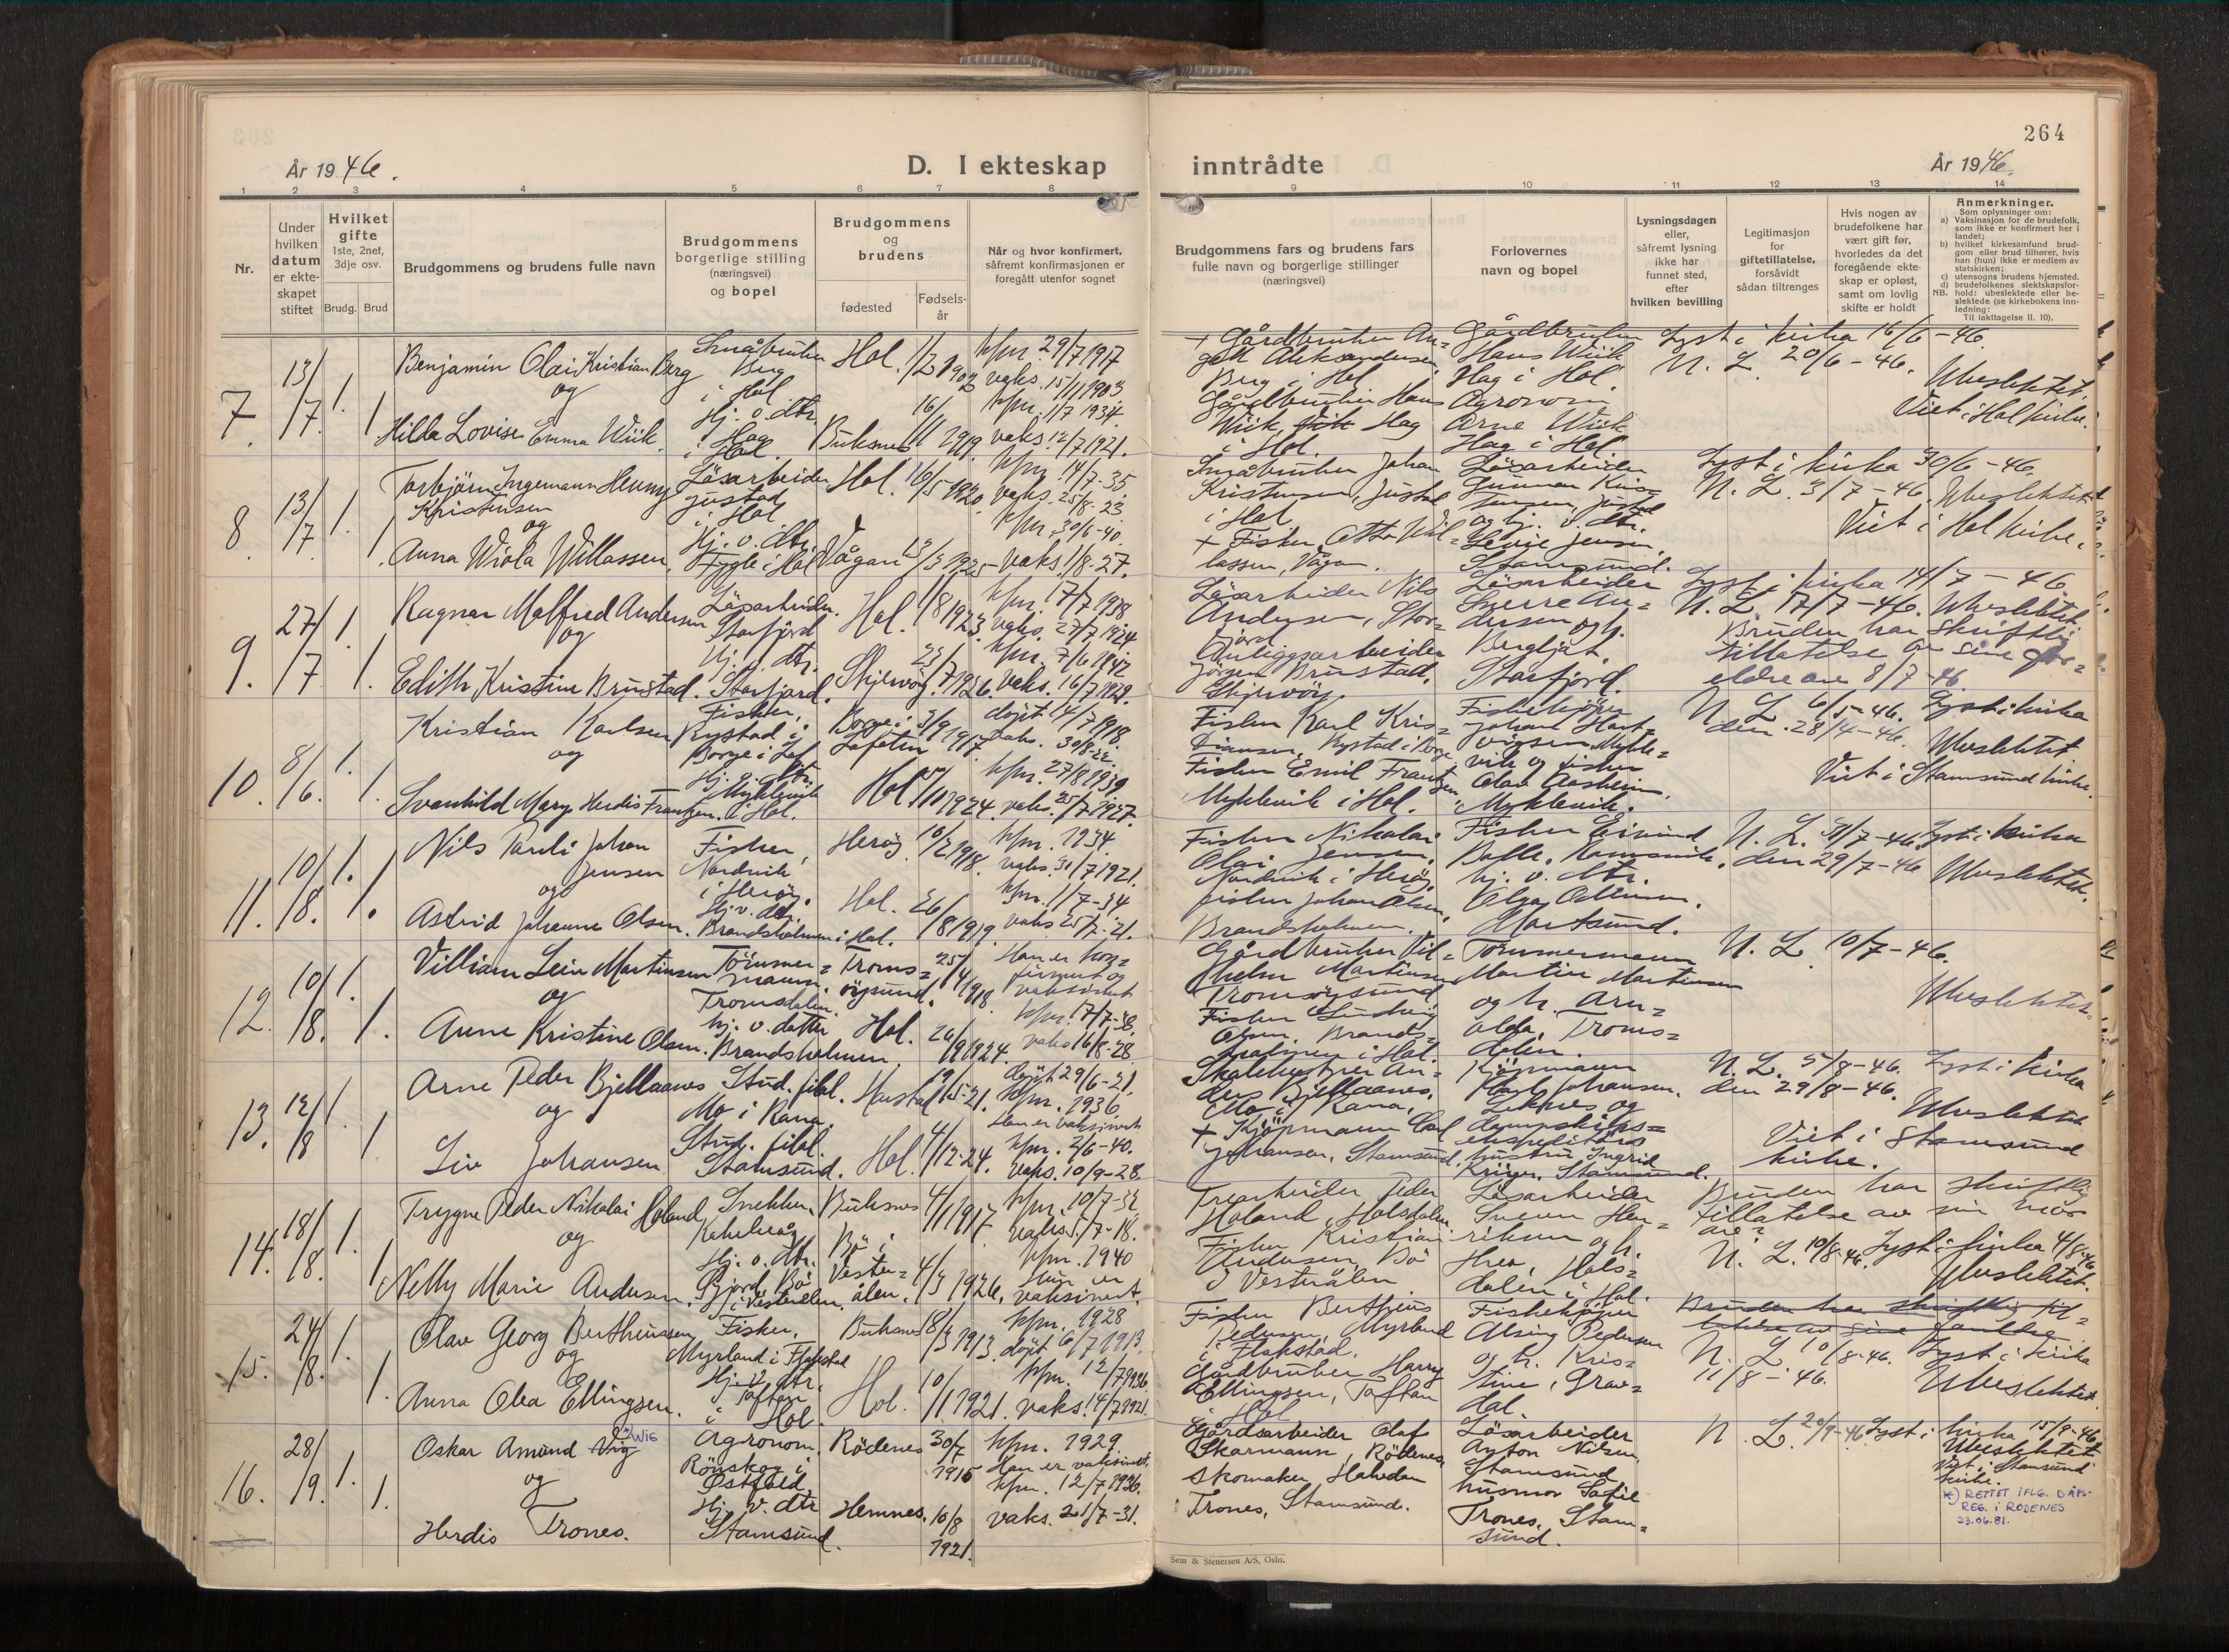 264
År 1946.
D. I ekteskap inntrådte
År 1946.
1 2 3 4 5 6 7 8 9 10 11 12 13 14
Nr.
Under
hvilken
datum
er ekte-
skapet
stiftet
Hvilket
gifte
1ste, 2net,
3dje osv.
Brudg. Brud
Brudgommens og brudens fulle navn
Brudgommens
borgerlige stilling
(næringsvei)
og bopel
Brudgommens
og
brudens
fødested
Fødsels-
år
Når og hvor konfirmert,
såfremt konfirmasjonen er
foregått utenfor sognet
Brudgommens fars og brudens fars
fulle navn og borgerlige stillinger
(næringsvei)
Forlovernes
navn og bopel
Lysningsdagen
eller,
såfremt lysning
ikke har
funnet sted,
efter
hvilken bevilling
Legitimasjon
for
giftetillatelse,
forsåvidt
sådan tiltrenges
Hvis nogen av
brudefolkene har
vært gift før,
hvorledes da det
foregående ekte-
skap er opløst,
samt om lovlig
skifte er holdt
Anmerkninger.
Som oplysninger om:
a) Vaksinasjon for de brudefolk,
som ikke er konfirmert her i
landet;
b) hvilket kirkesamfund brud-
gom eller brud tilhører, hvis
han (hun) ikke er medlem av
statskirken;
c) utensogns brudens hjemsted.
d) brudefolkenes slektskapsfor-
NB. hold: ubeslektede eller be-
slektede (se kirkebokens inn-
ledning:
Til iakttagelse II. 10).
7. 13/7 1. 1
Benjamin Olai Kristian Berg
og
Hilda Lovise Emma Wiik.
Småbruker
Berg
i Hol
Hj. v. dtr.
Hag
i Hol.
Hol. 1/2 1902
Buksnes 16/11 1919
kfm. 29/7 1917
vaks. 15/11 1903
kfm. 1/7 1934.
vaks. 12/7 1921.
+ Gårdbruker An-
gell Aleksandersen
Berg i Hol
Gårdbruker Hans
Wiik, Hag
i Hol.
Gårdbruker
Hans Wiik
Hag i Hol.
Agronom
Arne Wiik
Hag i Hol
Lyst i kirka 16/6 - 46.
N. L. 20/6 - 46.
Ubeslektet.
Viet i Hol kirke.
8. 13/7 1. 1
Torbjörn Ingemann Henny
Kristensen
og
Anna Wiola Willassen.
Lösarbeider
Justad
i Hol
Hj. v. dtr.
Fygle i Hol
Hol. 10/5 1920
Vågan 1925
kfm. 14/7-35
vaks. 25/8-23
kfm. 30/6-40.
vaks. 1/8-27.
Småbruker Johan
Kristensen, Justad
i Hol.
+ Fisker Otto Wil-
lassen, Vågan.
Lösarbeider
Gunnar Kris-
tensen, Justad
og hj. v. dtr.
Jensen
Stamsund.
Lyst i kirka 30/6 - 46.
N. L. 3/7 - 46. Ubeslektet
Viet i Hol kirke.
9. 27/7 1. 1.
Ragnar Malfred Andersen
og
Edith Kristine Brustad.
Lösarbeider.
Storfjord
Hj. v. dtr.
Storfjord.
Hol. 1/8 1923.
Skjervöy. 23/7 1926.
kfm. 17/7 1938
vaks. 27/7 1924
kfm. 7/6 1942
vaks. 16/7 1929.
Lösarbeider Nils
Andersen, Stor-
fjord
Anleggsarbeider
Jörgen Brustad,
Skjervöy.
Lösarbeider
Sverre An-
dersen og h.
Bergljót,
Storfjord.
Lyst i kirka 14/7 - 46.
N. L. 17/7 - 46. Ubeslektet.
Bruden har skriftlig
tillatelse av sine for-
eldre av 8/7 - 46.
10. 8/6. 1. 1.
Kristian Karlsen
og
Svanhild Mary Herdis Frantzen.
Fisker,
Rystad i
Borge i Lof.
Hj. v. dtr.
Myklevik
i Hol.
Borge i 3/9
Lofoten 1917
Hol /11 1924.
döpt 14/7 1918
vaks. 30/8-22.
kfm. 27/8 1939
vaks. 25/7 1927.
Fisker Karl Kris-
tiansen, Rystad i Borge
Fisker Emil Frantzen
Myklevik i Hol.
Fiskekjöper
Johan Hart-
vigsen, Mykle-
vik og fisker
Olav Aasheim,
Myklevik.
N. L. 6/5 - 46. Lyst i kirka
den 28/4 - 46. Ubeslektet.
Viet i Stamsund kirke.
11. 10/8. 1. 1.
Nils Pauli Johan
Jensen
og
Astrid Johanne Olsen.
Fisker,
Nordvik
i Heröy.
Hj. v. dtr.
Brandsholmen i Hol.
Heröy 10/2 1918.
Hol. 26/8 1919.
kfm. 1934.
vaks. 30/7 1921.
kfm. 1/7-34
vaks 25/7-21.
Fisker Nikolai
Olai Jensen,
Nordvik i Heröy
fisker Johan Olsen,
Brandsholmen.
Fisker Eivind
Balle,
hj. v. dtr.
Olga
Mortsund.
N. L. 31/7 - 46. Lyst i kirka
den 29/7 - 46
Ubeslektet.
12. 10/8. 1. 1.
Villiam Leiv Martinsen
og
Anne Kristine Olsen.
Tömmer-
mann.
Tromsdalen
hj. v. datter
Brandsholmen.
Troms-
öysund. 25/4 1918
Hol. 26/9 1924.
Han er kon-
firmert og
vaksinert
kfm. 17/7-38.
vaks 16/8-28
Gårdbruker Vil-
helm Martinsen
Tromsöysund
Fisker Ludvig
Olsen, Brands-
holmen i Hol.
Tömmermann
Martin Martinsen
og h. Arn-
alda, Troms-
dalen.
N. L. 10/7 - 46.
Ubeslektet.
13. 12/8 1. 1
Arne Peder Bjellaanes
og
Liv Johansen
Stud. filol.
Mo i Rana.
Stud. filol.
Stamsund.
Harstad 19/5-21.
Hol. 4/12-24.
döpt 29/6-21.
kfm. 1936.
Han er vaksinert
kfm. 2/6-40.
vaks. 10/9-28.
Skatekasserer An-
ders Bjellaanes,
Mo i Rana,
+ Kjöpmann Carl
Johansen, Stamsund.
Kjöpmann
Karl Johansen,
Leknes og
dampskips-
ekspeditörs
hustru Ingrid
Kriger, Stamsund.
N. L. 5/8 - 46. Lyst i kirka
den 29/8 - 46.
Ubeslektet
Viet i Stamsund
kirke.
14. 18/8. 1. 1
Trygve Peder Nikolai Holand
og
Nelly Marie Andersen.
Snekker,
Kabelvåg
Hj. v. dtr.
Fjord, Bö
i Vesterålen.
Buksnes 4/1 1917
Bö i
Vester-
ålen. 4/3 1926.
kfm. 10/7-32
vaks. 5/7-18.
kfm. 1940
Hun er
vaksinert.
Trearbeider Peder
Holand, Holsdalen
Fisker Kristian
Andersen, Bö
i Vesterålen
Lösarbeider
Sverre Hen-
riksen og h.
Hols-
dalen i Hol.
Bruden har skriftlig
tillatelse av sin mor
N. L. 10/8-46. Lyst i kirka 4/8-46
Ubeslektet.
15. 24/8. 1. 1.
Olav Georg Bertheussen
og
Anna Olea Ellingsen.
Fisker,
Myrland i Flakstad
Hj. v. dtr.
Toftan
i Hol.
Buksnes 18/3 1913.
Hol. 10/11 1921.
kfm. 1928
döpt 6/7 1913.
kfm. 12/7 1936.
vaks. 14/7 1921.
Fisker Bertheus
Pedersen, Myrland
i Flakstad.
Gårdbruker Harry
Ellingsen, Toftan
i Hol
Fiskekjöper
Alsing Pedersen
og h. Kris-
tine, Grav-
Hol.
Bruden har skriftlig til-
latelse av sine foreldre.
N. L. 10/8-46. Lyst i kirka
11/8 - 46.
Ubeslektet.
16. 28/9. 1. 1.
Oskar Amund Vig *) WIG
og
Herdis Trones.
Agronom,
Rönskog i
Östfold.
Hj. v. dtr
Stamsund.
Rödenes 30/7 1915
Hemnes. 16/8 1921.
kfm. 1929.
Han er vaksinert.
kfm. 12/7 1936.
vaks. 21/7-31.
Gårdsarbeider Olaf
Skarmann, Rödenes
Skomaker, Hakedan
Trones, Stamsund.
Lösarbeider
Anton Nilsen
Stamsund
husmor Sofie
Trones, Stam-
sund.
N. L. 20/9-46. Lyst i kirka 15/9-46
Ubeslektet
Viet i Stamsund
kirke.
*) RETTET IFLG. DÅPS-
REG. I RÖDENES
23.06.81.
Sem & Stenersen A/S, Oslo.